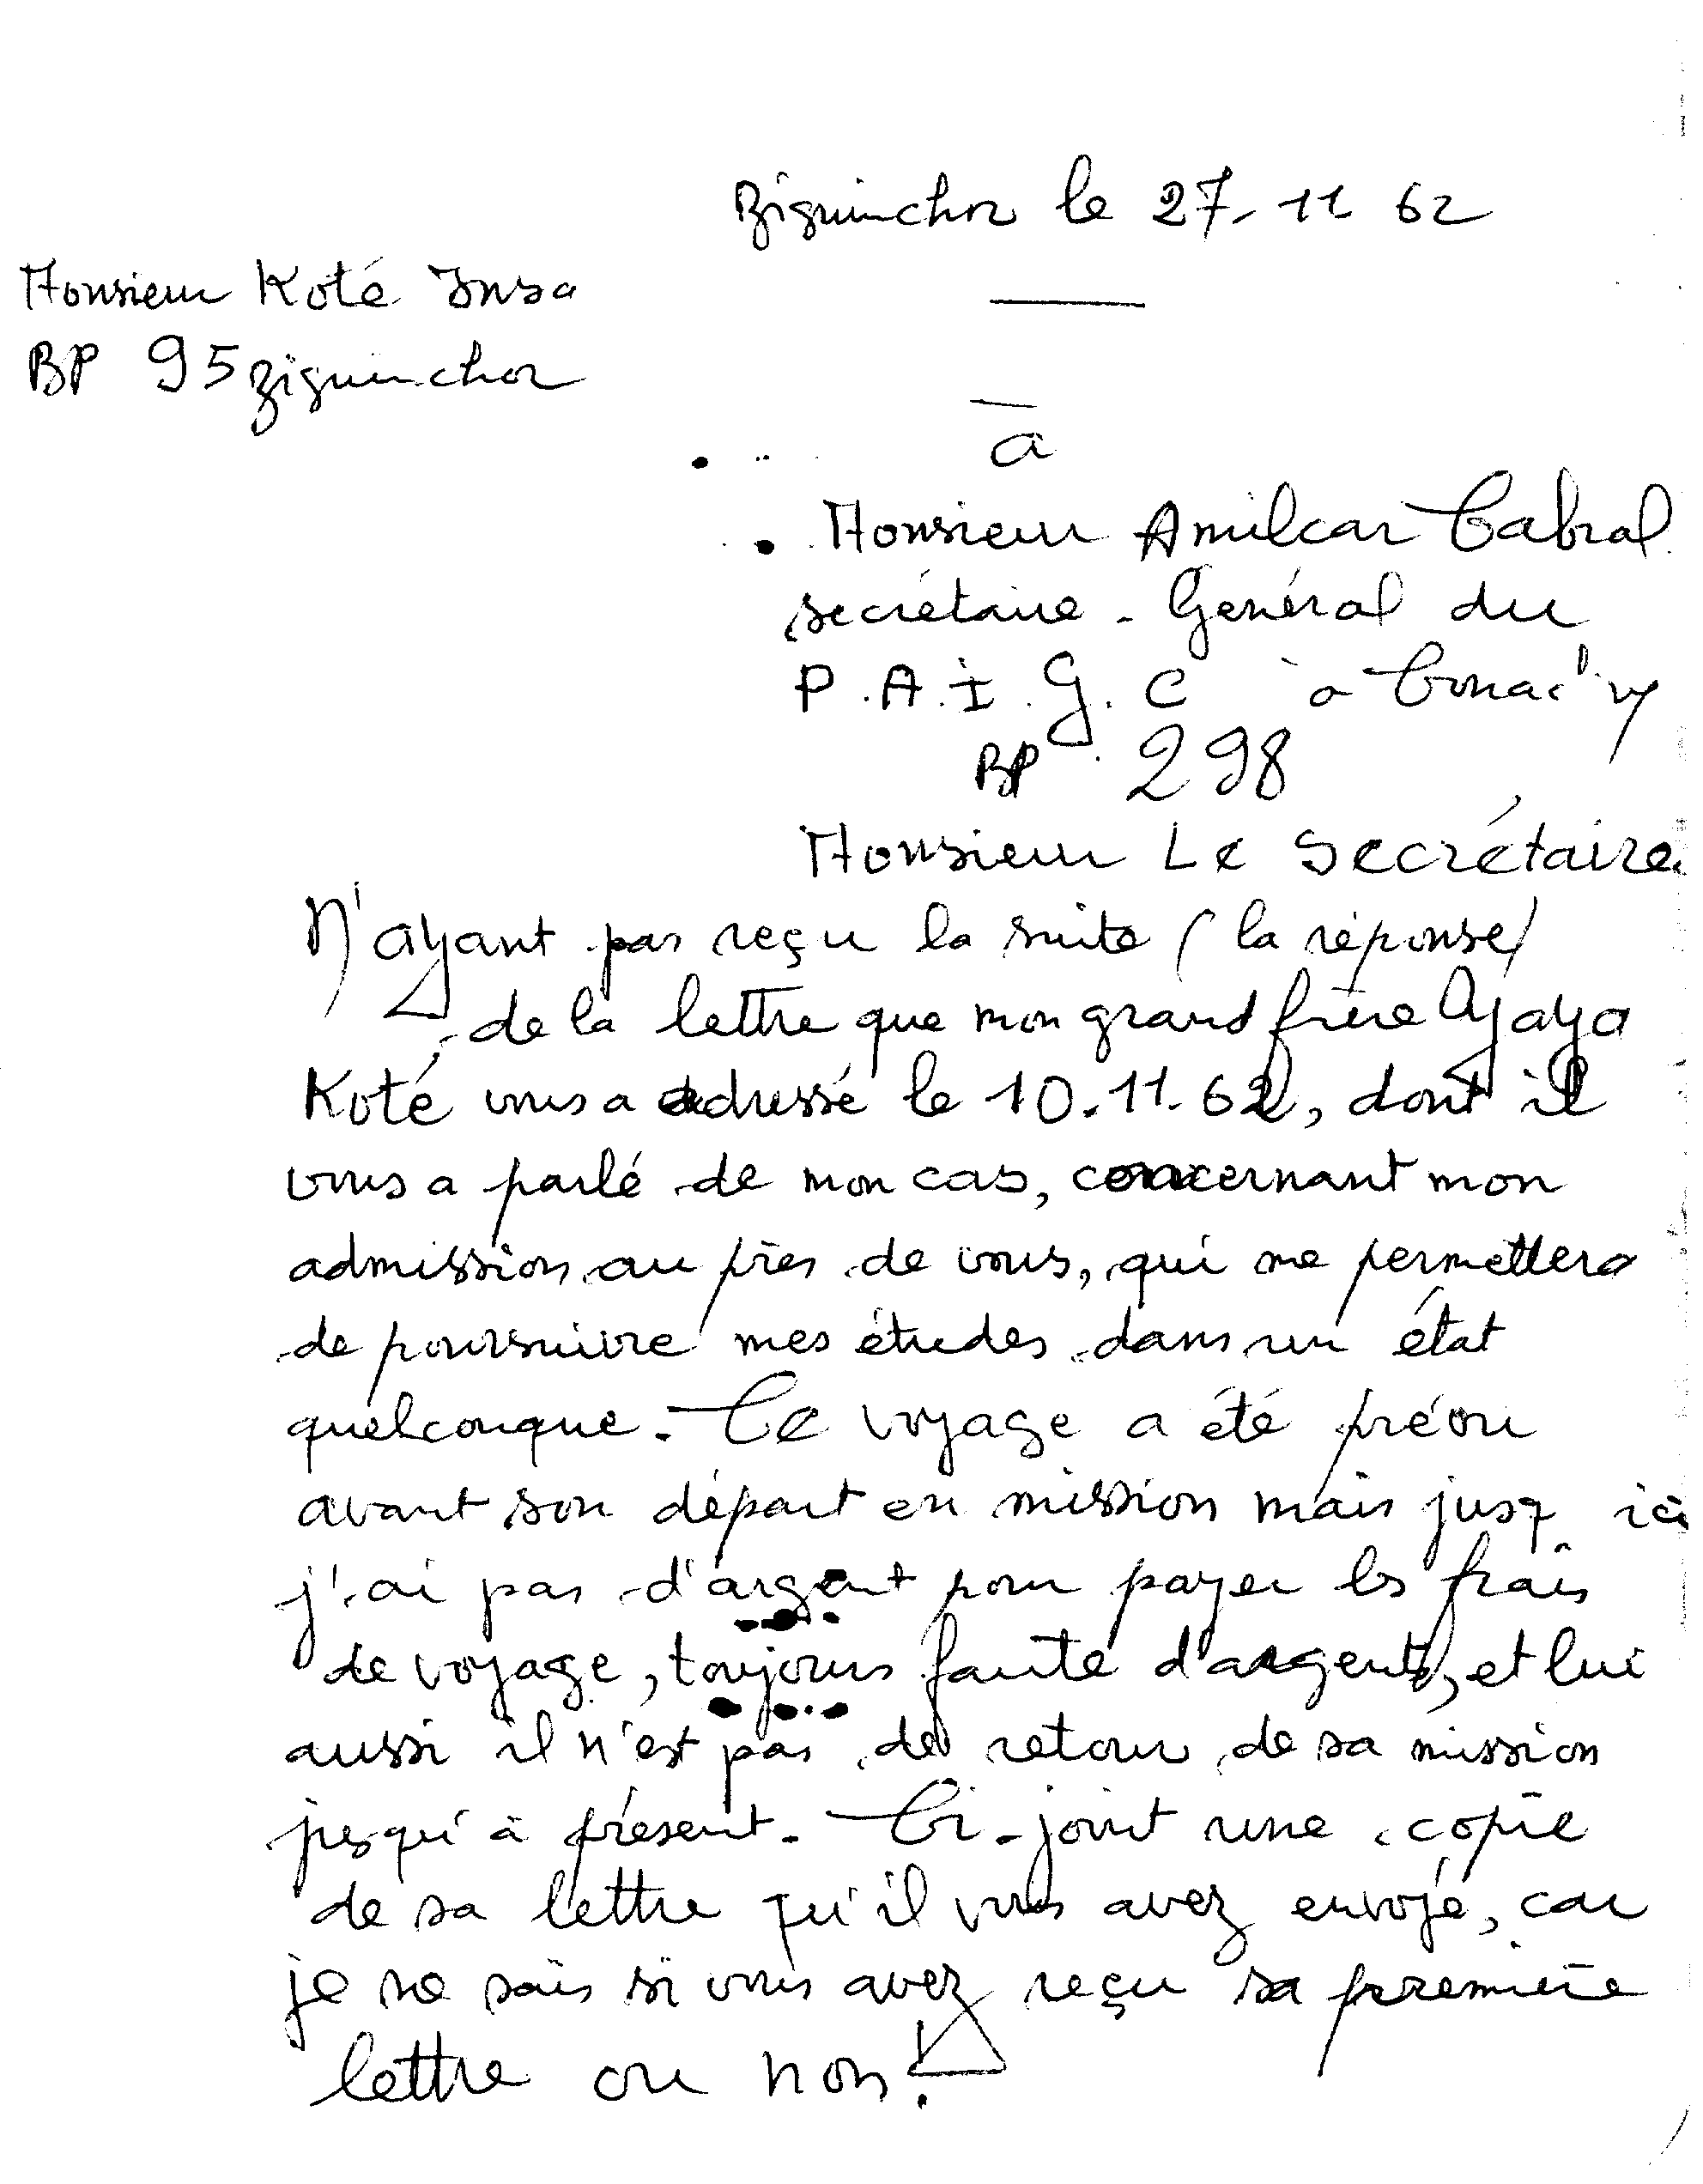 Ziguinchor le 27-11 62
Monsieur Koté Insa
BP 95 Ziguinchor
à
Monsieur Amilcar Cabral
secrétaire - Général du
P.A.I.G.C à Conacry
BP 298
Monsieur Le Secrétaire
N'ayant pas reçu la suite (la réponse)
de la lettre que mon grand frère Yaya
Koté vous a adressé le 10.11.62, dont il
vous a parlé de mon cas, concernant mon
admission au près de vous, qui me permettera
de poursuivre mes études dans un état
quelconque. Ce voyage a été prévu
avant son départ en mission mais jusq ici
j'ai pas d'argent pour payer les frais
de voyage, toujours faute d'argent, et lui
aussi il n'est pas de retour de sa mission
jusqu'à présent. Ci-joint une copie
de sa lettre qu'il vous avez envoyé, car
je ne sais si vous avez reçu sa première
lettre ou non!